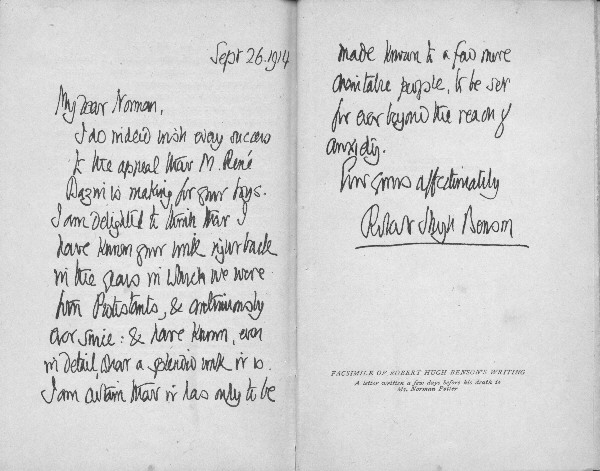 Sept 26. 1914
My dear Norman,
I do indeed wish every success
to the appeal that M. René
Bazin is making for your boys.
I am delighted to think that I
have known your work right back
in the years in which we were
both Protestants, & continuously
ever since: & have known, even
in detail, what a splendid work it is.
I am certain that it has only to be
made known to a few more
charitable people, to be set
for ever beyond the reach of
anxiety.
Ever yours affectionately
Robert Hugh Benson
FACSIMILE OF ROBERT HUGH BENSON'S WRITING
A letter written a few days before his death to
Mr. Norman Potter